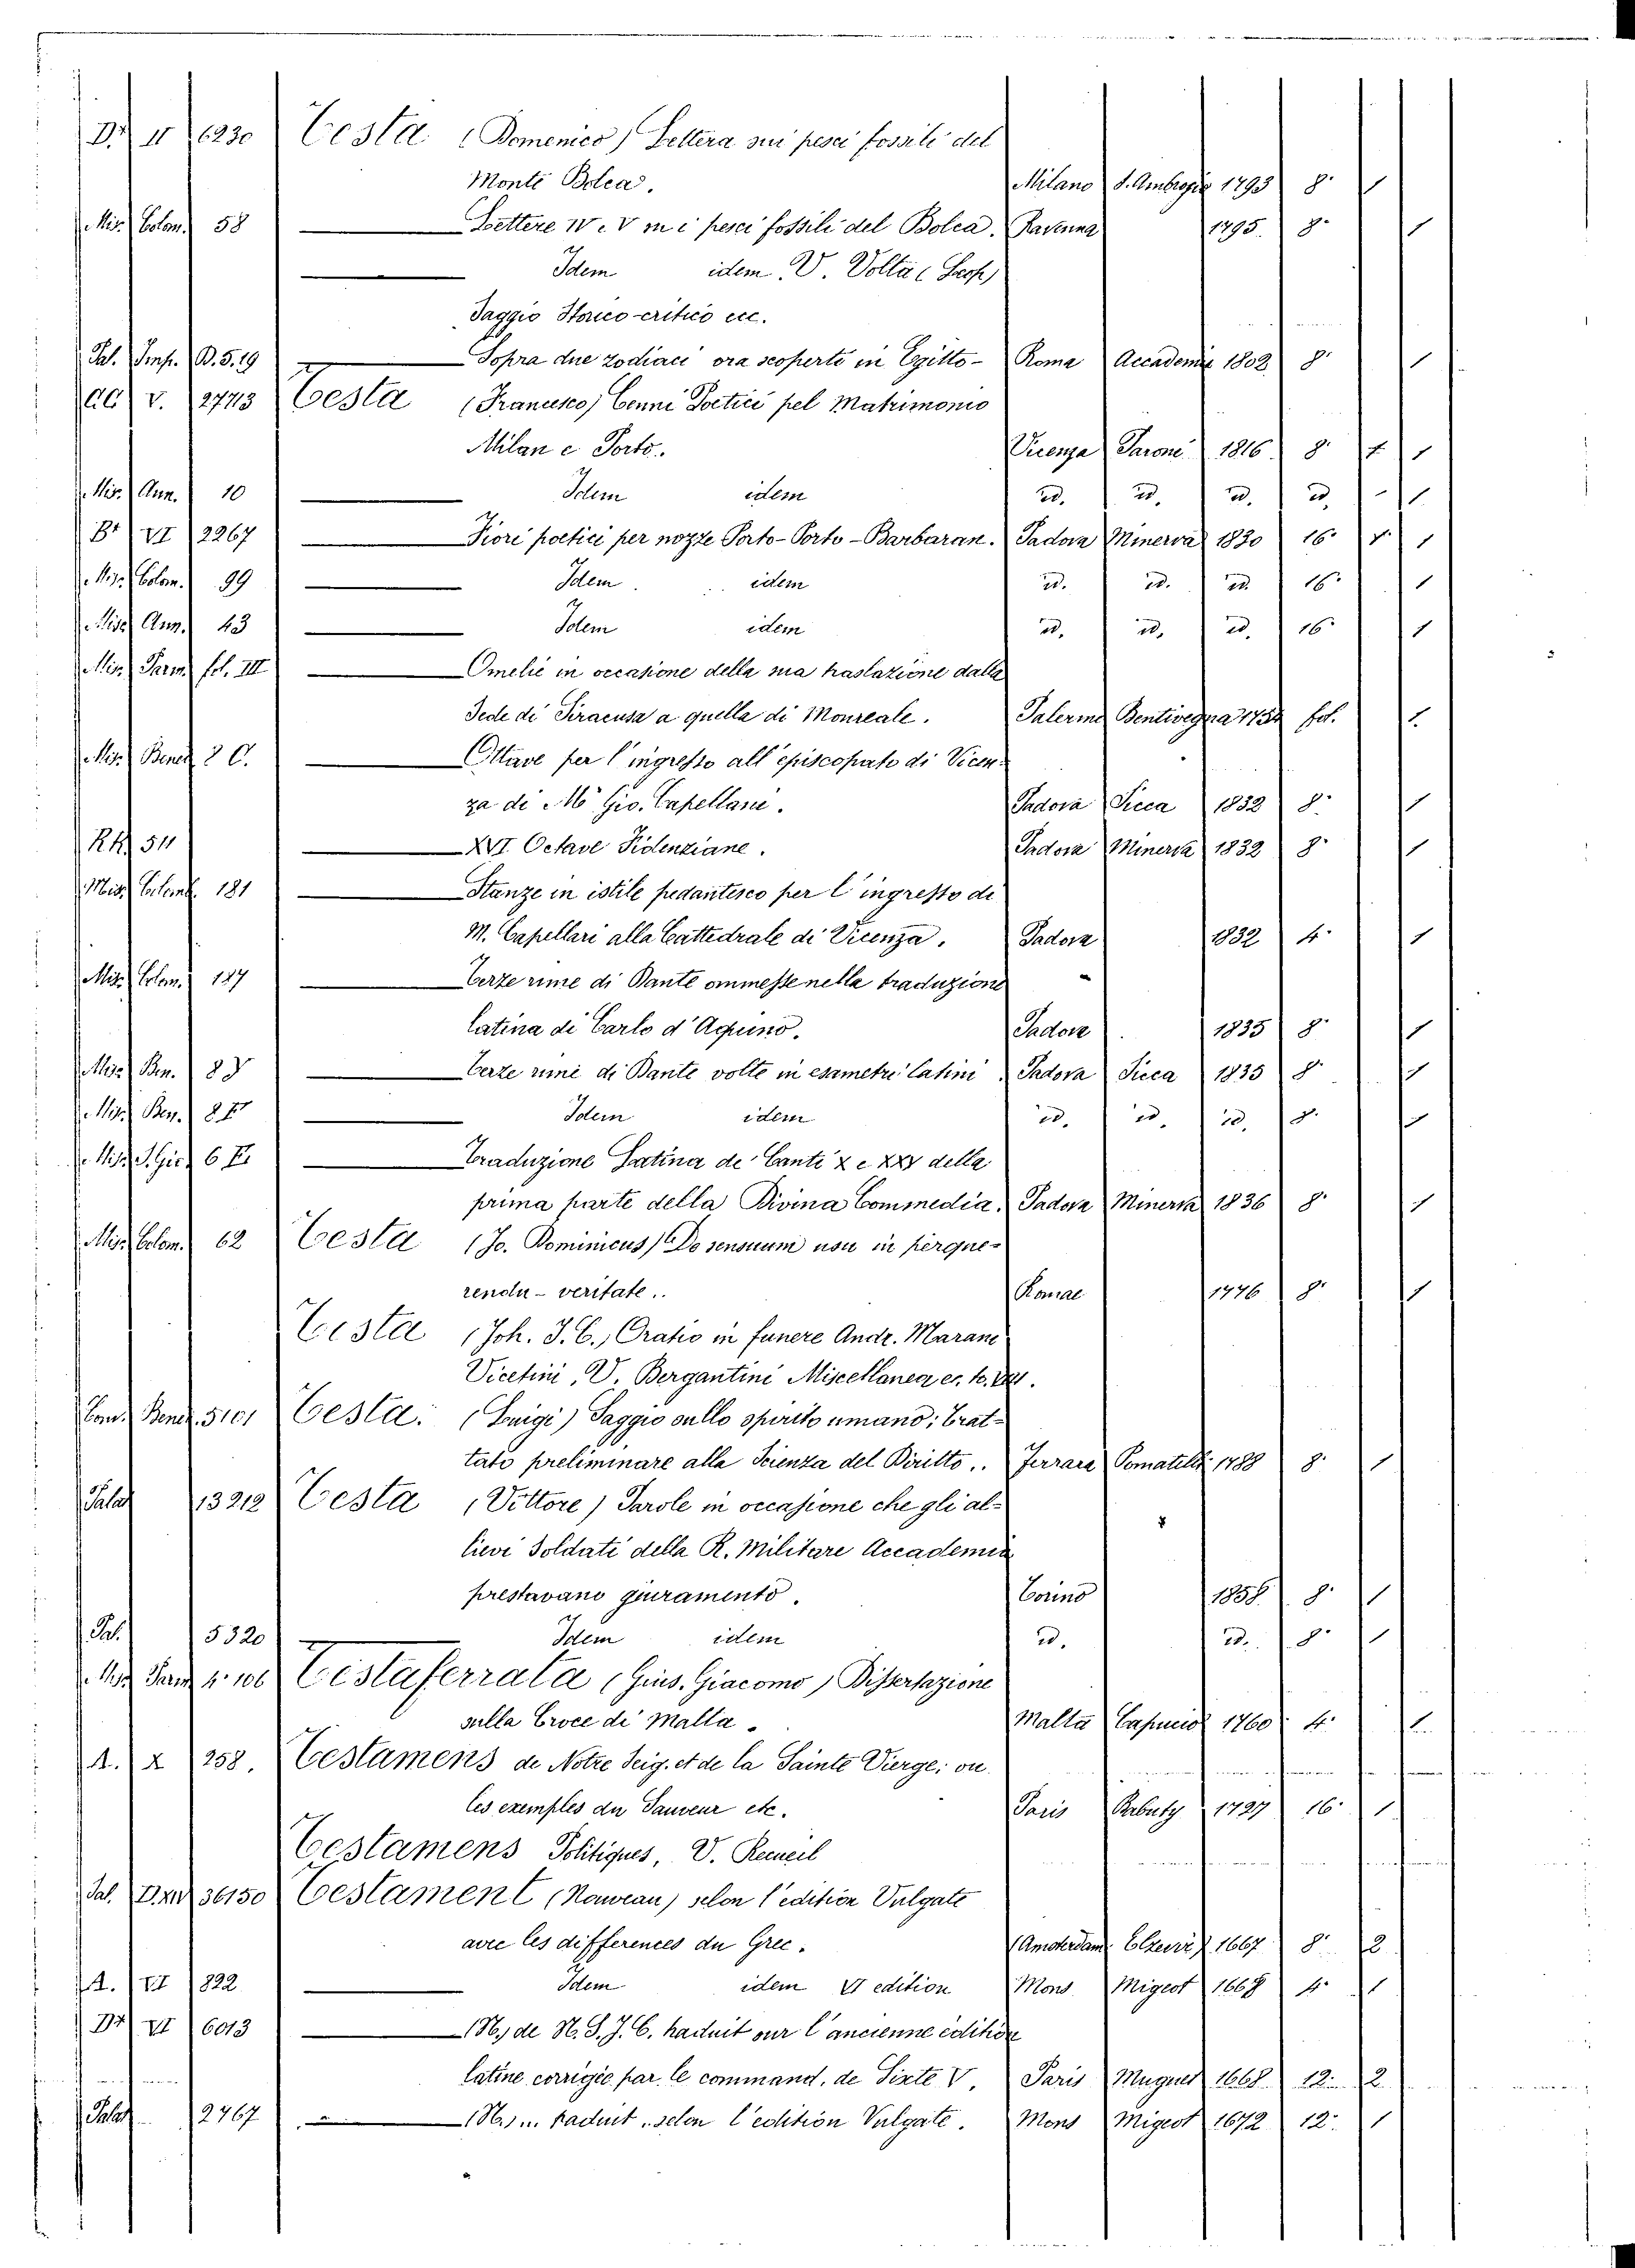 D. II 6230 Testa (Domenico) Lettera sui pesci fossili del
Monte Bolca. Milano S. Ambrogio 1793 8.° 1
Mis. Colom. 58 Lettere IV. V su i pesci fossili del Bolca. Ravenna 1795. 8.° 1
Idem idem V. Volta (Ser.)
Saggio Storico-critico etc.
Pal. Imp. B. 5. 19 Sopra due zodiaci ora scoperti in Egitto - Roma Accademia 1802 8.° 1
AC V. 2773 Testa (Francesco) Cenni Poetici pel Matrimonio
Milan e Porto. Vicenza Paroni 1816 8.° 1
Mis. Ann. 10 Idem idem id. id. id. id. 1
B VI 2267 Fiori poetici per nozze Porto-Porto-Barbaran. Padova Minerva 1830 16.° 1
Mis. Colom. 99 Idem idem id. id. id. 16.° 1
Misc. Ann. 43 Idem idem id. id. id. 16.° 1
Mis. Parm. fol. III Omelie in occasione della sua traslazione dalla
Sede di Siracusa a quella di Monreale. Palermo Bentivegna 1754 fol. 1.
Mis. Bened. 2 C. Ottave per l'ingresso all'episcopato di Vicen-
za di M.r Gio. Capellari. Padova Sicca 1832 8.° 1
511 XVI Octave Fidenziane. Padova Minerva 1832 8.° 1
Mis. Colomb. 181 Stanze in istile pedantesco per l'ingresso di
M. Capellari alla Cattedrale di Vicenza. Padova 1832 4.° 1
Mis. Colom. 187 Terze rime di Dante ommesse nella traduzione
latina di Carlo d'Aquino. Padova 1835 8.° 1
Misc. Ben. Terze rime di Dante volte in esametri latini. Padova Sicca 1835 8.° 1
Misc. Ben. Idem idem id. id. id. 8.° 1
Traduzione Latina de' Canti X e XXV della
prima parte della Divina Commedia. Padova Minerva 1836 8.° 1
Mis. Colom. 62 Testa (Jo. Dominicus) De sensuum usu in perque-
renda - veritate.. Romae 1776 8.° 1
Testa (Joh. J. C.) Oratio in funere Andr. Marani
Vicetini, V. Bergantini Miscellanea
Com. Bened. 5101 Testa. (Luigi) Saggio sullo spirito umano; Trat-
tato preliminare alla Scienza del Diritto.. Ferrara Pomatelli 1788 8.° 1
Palat 13212 Testa (Vittore) Parole in occasione che gli al-
lievi Soldati della R. Militare Accademia
prestavano giuramento. Torino 1858. 8.° 1
Pal. 5320 Idem idem id. id. 8.° 1
Mis. Parm. 4.° 106 Testaferrata (Gius. Giacomo) Dissertazione
sulla Croce di Malta. Malta Capacio 1760 4.° 1
A. X 258. Testamens de Notre Seig. et de la Sainte Vierge; ou
les exemples du Sauveur etc. Paris 1727 16.° 1
Testamens Politiques, V. Recueil
Pal. 36150 Testament (Nouveau) selon l'edition Vulgate
avec les differences du Grec. Amsterdam Elzevir 1667 8.° 2
A. VI 822 Idem idem V edition Mons Migeot 1668 4.° 1
VI 6013 (N.) de N. S. J. C. traduit sur l'ancienne edition
latine corrigée par le command. de Sixte V. Paris Muguet 1668. 12. 2
Palat 2767 (N.) ... traduit, selon l'edition Vulgate. Mons Migeot 1672 12.° 1